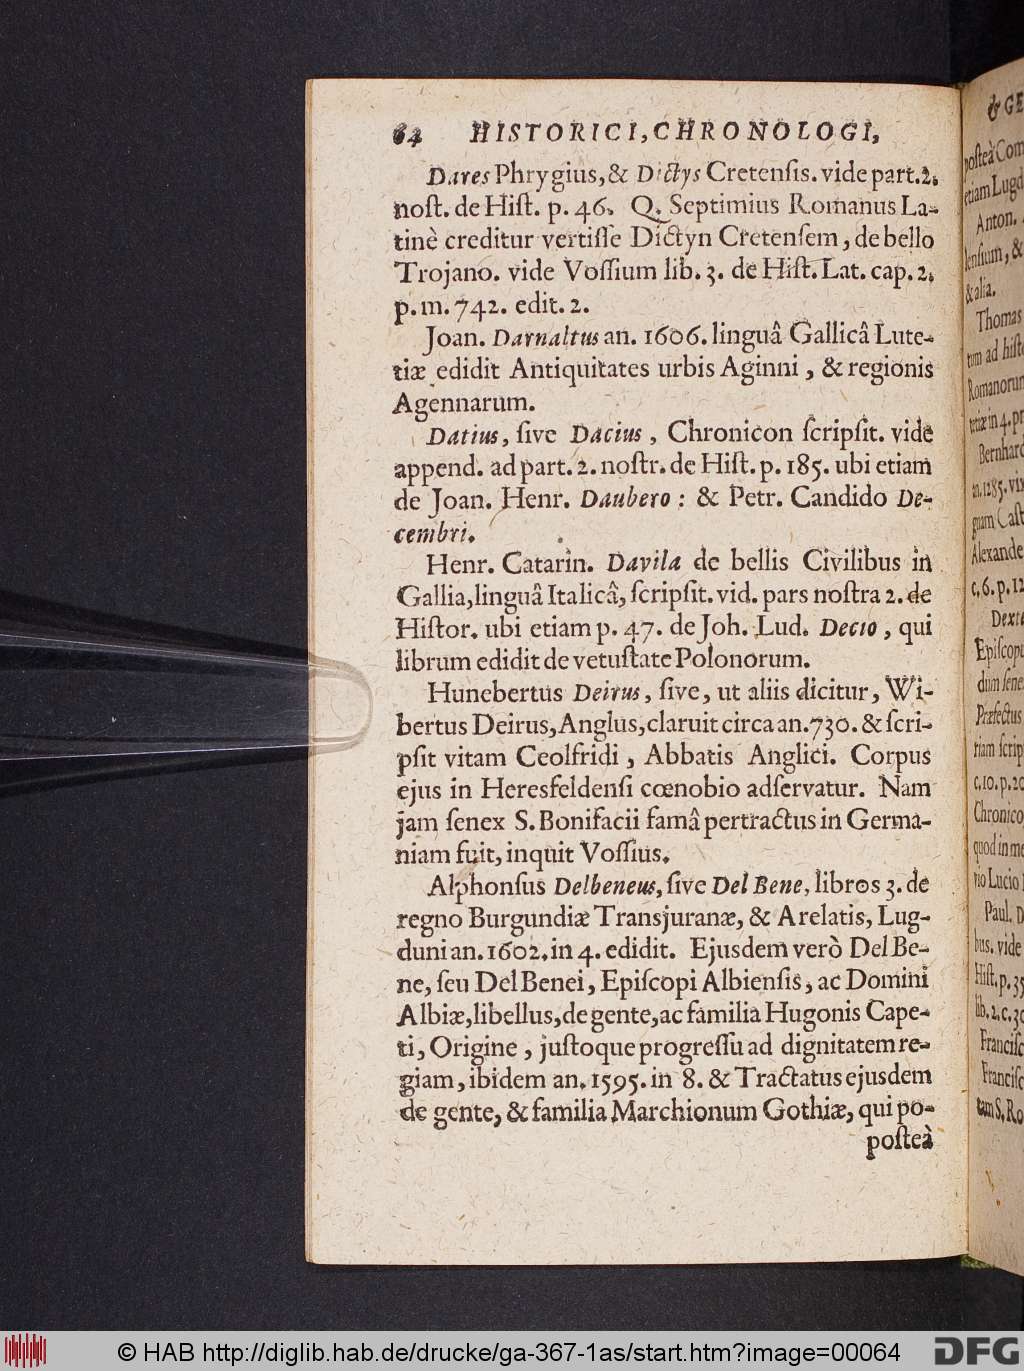 64 HISTORICI, CHRONOLOGI,
Dares Phrygius, & Dictys Cretenſis. vide part. 2.
noſt. de Hiſt. p. 46. Q. Septimius Romanus La-
tinè creditur vertiſſe Dictyn Cretenſem, de bello
Trojano. vide Voſſium lib. 3. de Hiſt. Lat. cap. 2.
p. m. 742. edit. 2.
Joan. Darnaltus an. 1606. linguâ Gallicâ Lute-
tiæ edidit Antiquitates urbis Aginni, & regionis
Agennarum.
Datius, ſive Dacius, Chronicon ſcripſit. vide
append. ad part. 2. noſtr. de Hiſt. p. 185. ubi etiam
de Joan. Henr. Daubero: & Petr. Candido De-
cembri.
Henr. Catarin. Davila de bellis Civilibus in
Gallia, linguâ Italicâ, ſcripſit. vid. pars noſtra 2. de
Hiſtor. ubi etiam p. 47. de Joh. Lud. Decio, qui
librum edidit de vetuſtate Polonorum.
Hunebertus Deirus, ſive, ut aliis dicitur, Wi-
bertus Deirus, Anglus, claruit circa an. 730. & ſcri-
pſit vitam Ceolfridi, Abbatis Anglici. Corpus
ejus in Heresfeldenſi cœnobio adſervatur. Nam
jam ſenex S. Bonifacii famâ pertractus in Germa-
niam fuit, inquit Voſſius.
Alphonſus Delbeneus, ſive Del Bene, libros 3. de
regno Burgundiæ Transjuranæ, & Arelatis, Lug-
duni an. 1602. in 4. edidit. Ejusdem verò Del Be-
ne, ſeu Del Benei, Epiſcopi Albienſis, ac Domini
Albiæ, libellus, de gente, ac familia Hugonis Cape-
ti, Origine, juſtoque progreſſu ad dignitatem re-
giam, ibidem an. 1595. in 8. & Tractatus ejusdem
de gente, & familia Marchionum Gothiæ, qui po-
poſteà
& GE
poſteà Com
etiam Lugd
Anton.
lenſium, &
& alia.
Thomas
tum ad hiſto
Romanorum
tetiæ in 4. pr
Bernhard
an. 1285. vix
guam Caſt
Alexande
c. 6. p. 12
Dext
Epiſcopi
dum ſene
Præfectus
riam ſcrip
c. 10. p. 20
Chronico
quod in me
rio Lucio
Paul. D
bus. vide
Hiſt. p. 35
lib. 2. c. 30
Franciſc
Franciſc
tam S. Ro
© HAB http://diglib.hab.de/drucke/ga-367-1as/start.htm?image=00064
DFG